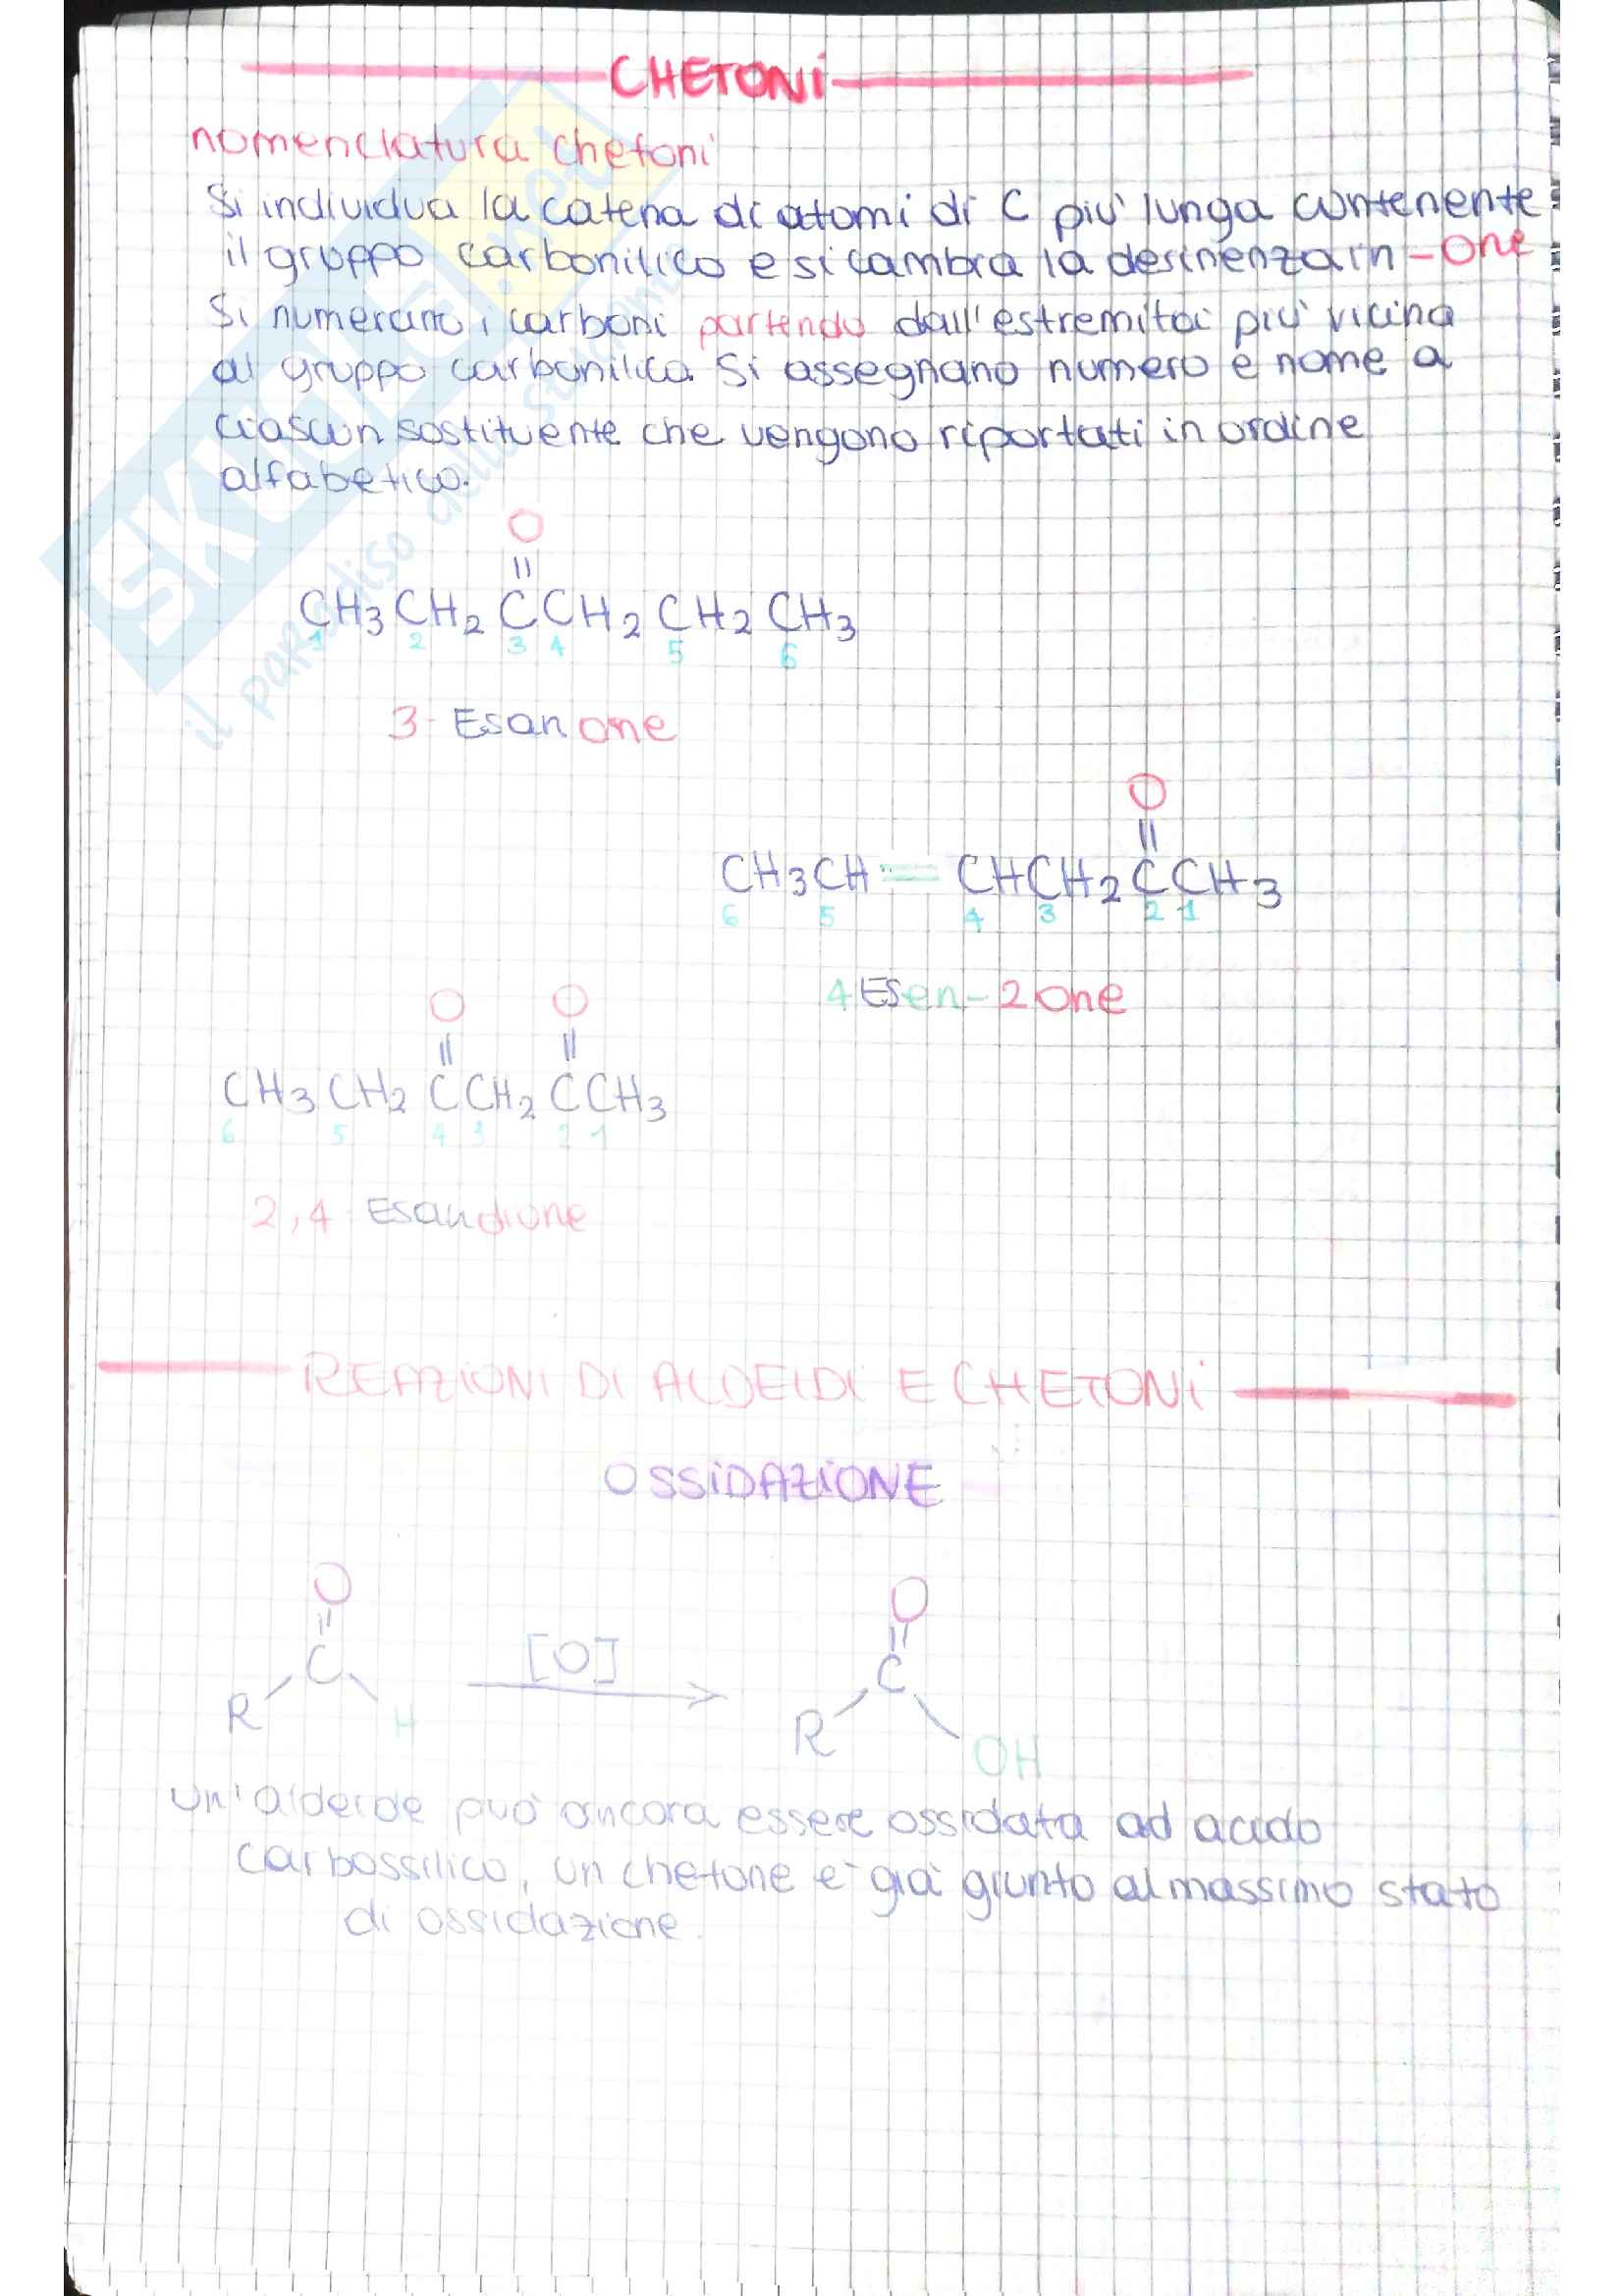 CHETONI
nomenclatura chetoni
Si individua la catena di atomi di C più lunga contenente
il gruppo carbonilico e si cambia la desinenza in -one
Si numerano i carboni partendo dall'estremità più vicina
al gruppo carbonilico. Si assegnano numero e nome a
ciascun sostituente che vengono riportati in ordine
alfabetico.
O
||
CH3 CH2 C CH2 CH2 CH3
1 2 3 4 5 6
3-Esanone
O
||
CH3CH=CHCH2CCH3
6 5 4 3 2 1
4Esen-2one
O O
|| ||
CH3 CH2 C CH2 C CH3
6 5 4 3 2 1
2,4-Esandione
REAZIONI DI ALDEIDI E CHETONI
OSSIDAZIONE
O O
|| ||
C [O] C
R H R OH
un'aldeide può ancora essere ossidata ad acido
carbossilico, un chetone è già giunto al massimo stato
di ossidazione.
SKUOLA.net
il paradiso dello studente